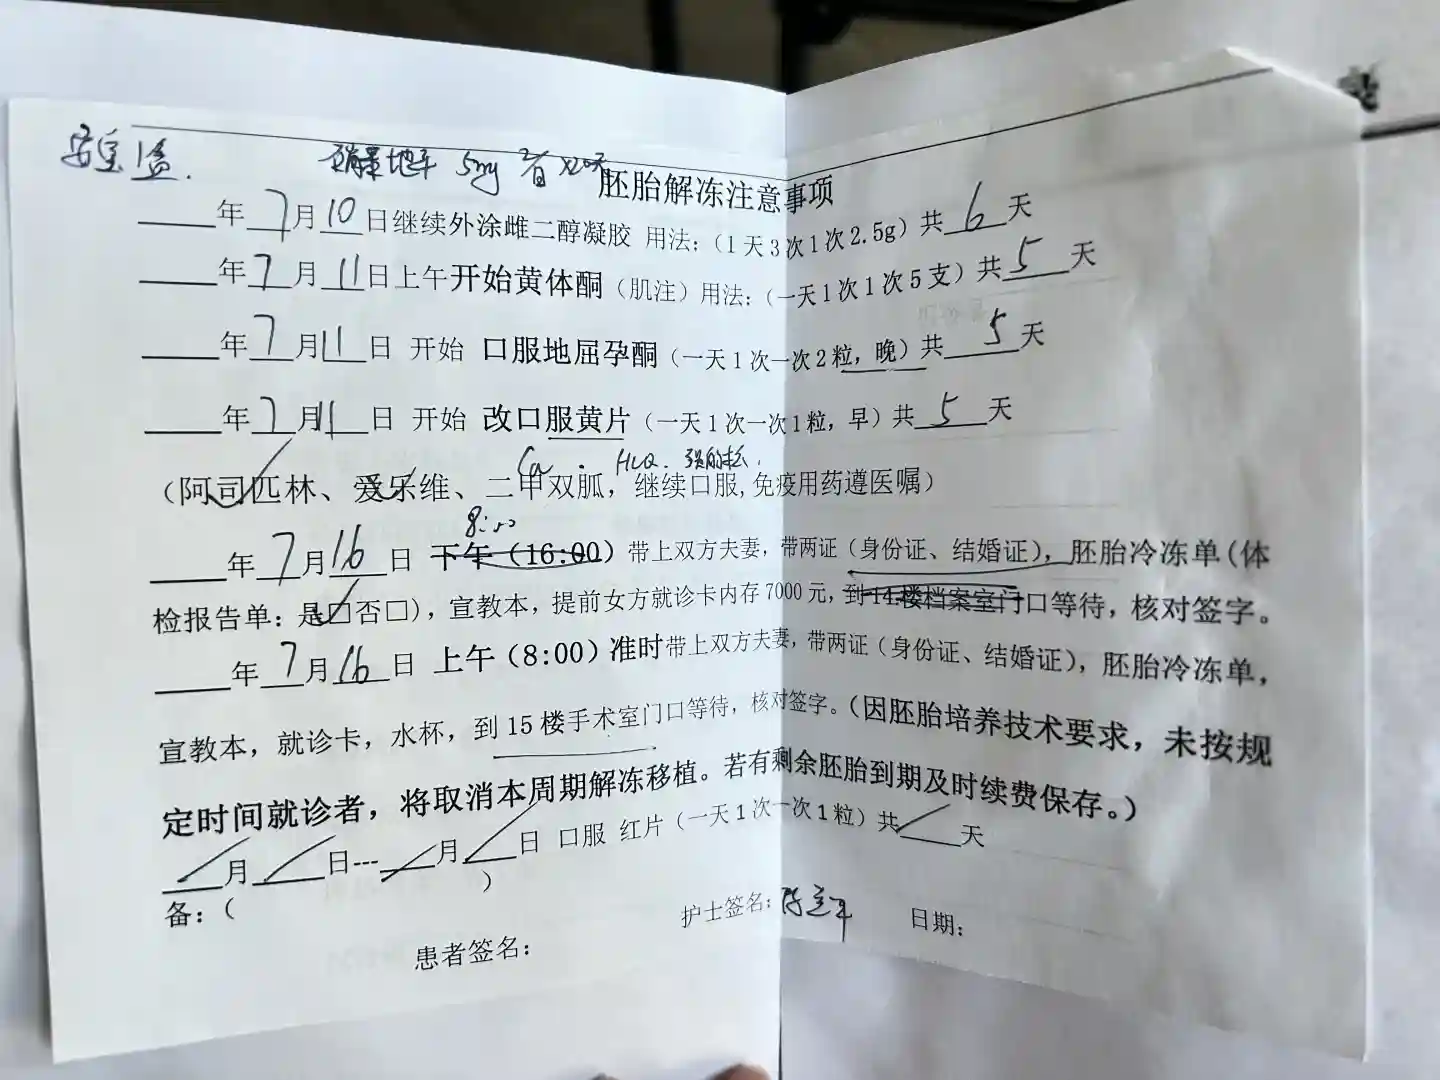 安宝1盒. 硝苯地平 5mg
胚胎解冻注意事项
____年 7月10日继续外涂雌二醇凝胶 用法:(1天3次1次2.5g)共 6 天
____年 7月 11日上午开始黄体酮(肌注)用法:(一天1次1次5支)共 5 天
____年 7月11日 开始 口服地屈孕酮(一天1次一次2粒,晚)共 5 天
____年 7月11日 开始 改口服黄片(一天1次一次1粒,早)共 5 天
Ca . HCQ.
(阿司匹林、爱乐维、二甲双胍,继续口服,免疫用药遵医嘱)
8:00
____年 7月16日 下午(16:00)带上双方夫妻,带两证(身份证、结婚证),胚胎冷冻单(体
检报告单:是□否□),宣教本,提前女方就诊卡内存7000元,到14楼档案室门口等待,核对签字。
____年 7月16日 上午(8:00)准时带上双方夫妻,带两证(身份证、结婚证),胚胎冷冻单,
宣教本,就诊卡,水杯,到15楼手术室门口等待,核对签字。(因胚胎培养技术要求,未按规
定时间就诊者,将取消本周期解冻移植。若有剩余胚胎到期及时续费保存。)
____月____日---____月____日 口服 红片(一天1次一次1粒)共____天
备:( )
患者签名: 护士签名: 日期: